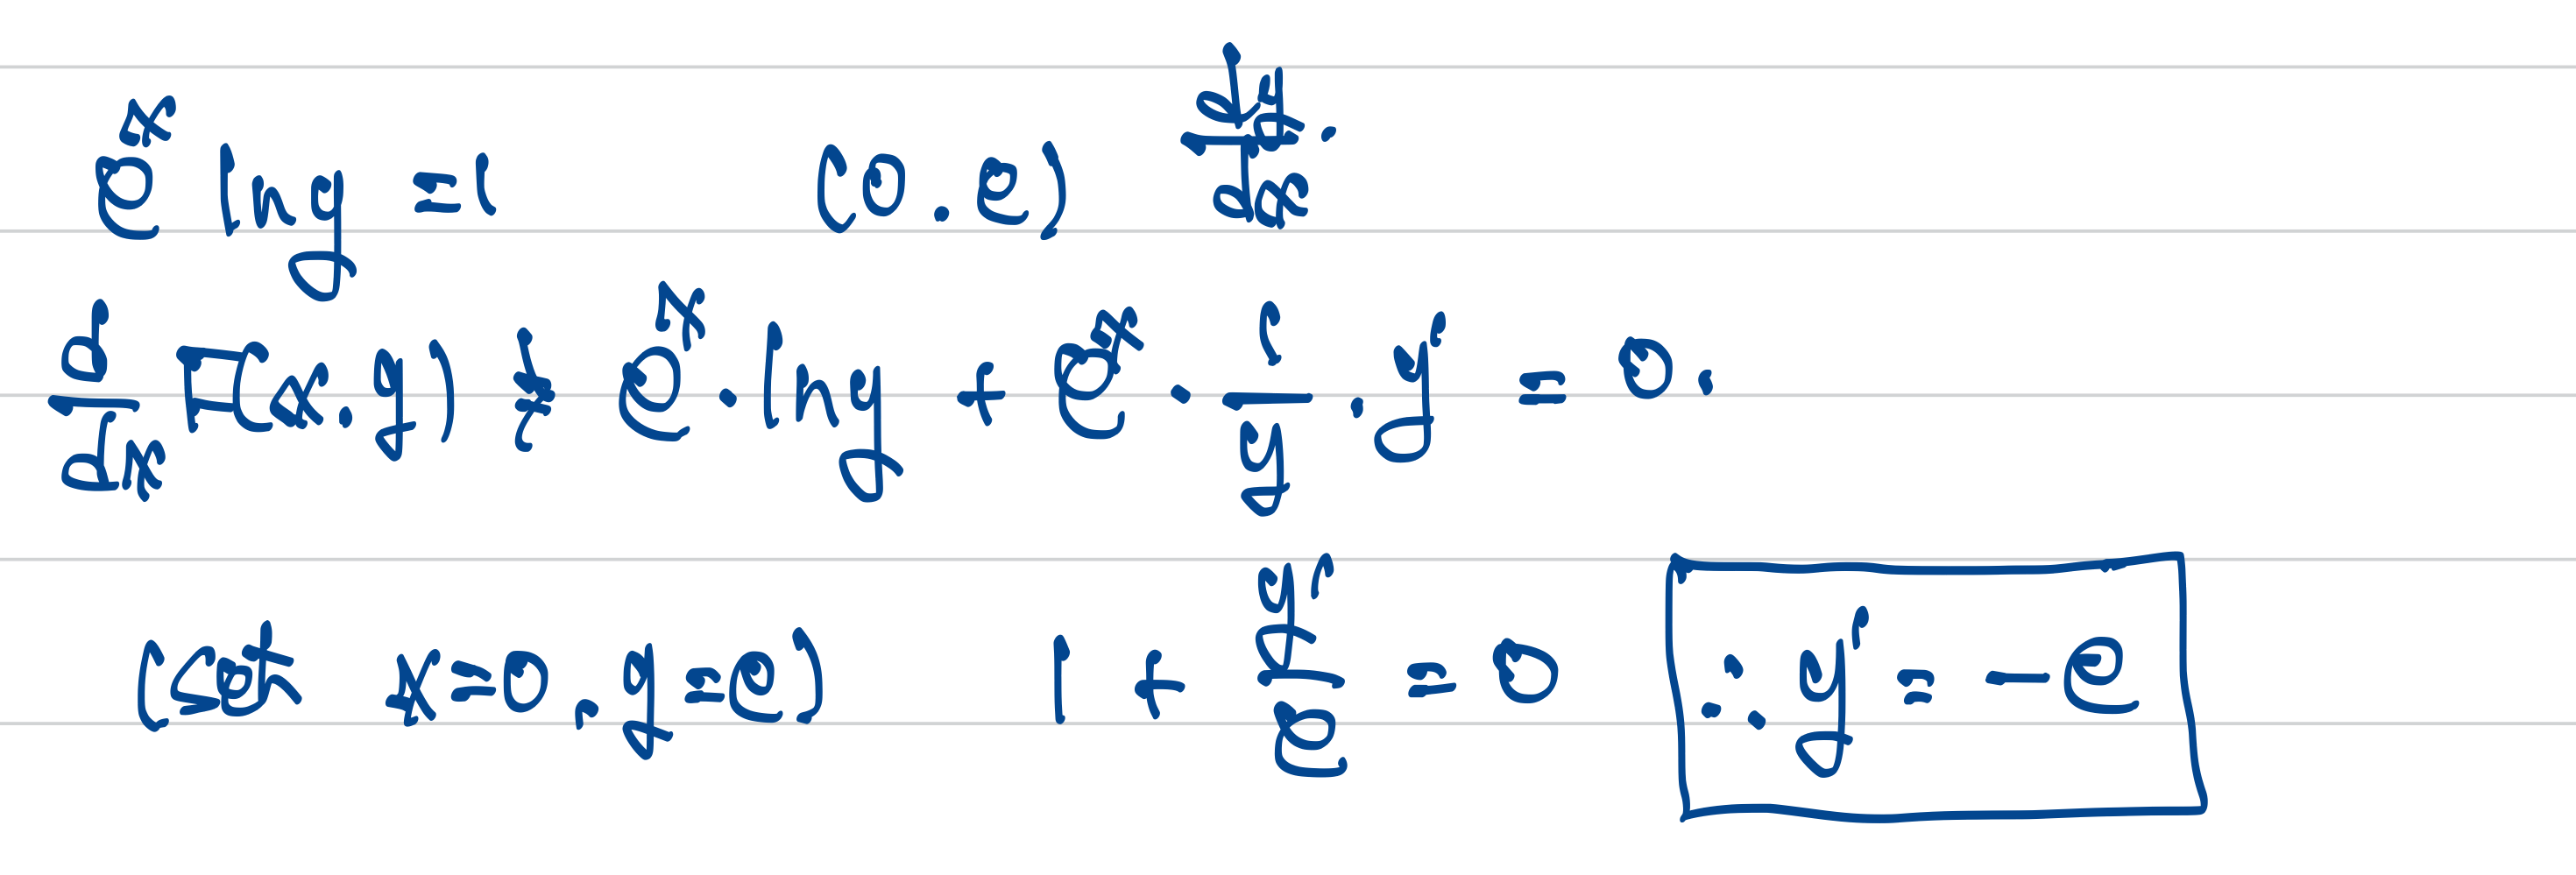 e^x ln y = 1 (0. e) dy/dx.
d/dx F(x.y) ≠ e^x · ln y + e^x · 1/y · y' = 0.
(set x=0, y=e) 1 + y'/e = 0 ∴ y' = -e